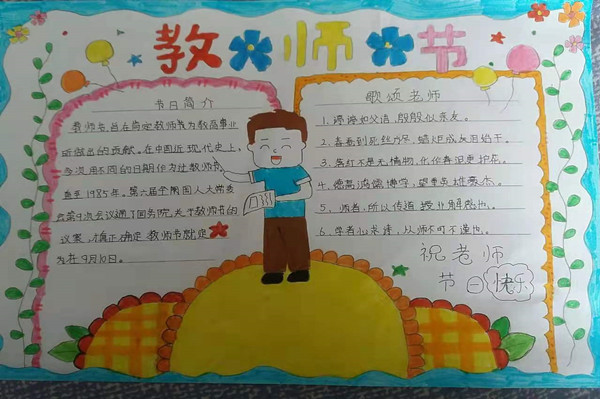 教师节
节日简介
教师节,旨在肯定教师为教育事业
所做出的贡献。在中国近现代史上,
多次用不同的日期作为过教师节
直至1985年,第六届全国人大常委
会第9次会议通了国务院关于教师节的
议案,真正确定教师节就定
为在9月10日。
歌颂老师
1、谆谆如父语,殷殷似亲友。
2、春蚕到死丝方尽,蜡炬成灰泪始干。
3、落红不是无情物,化作春泥更护花。
4、德高鸿儒博学,望重英雄豪杰。
5、师者,所以传道授业解惑也。
6、学者必求师,从师不可不谨也。
祝老师
节日快乐